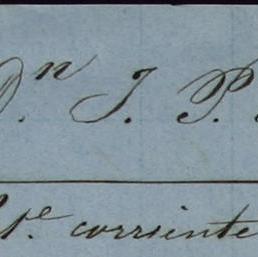 Dn J. P.
Cte corriente